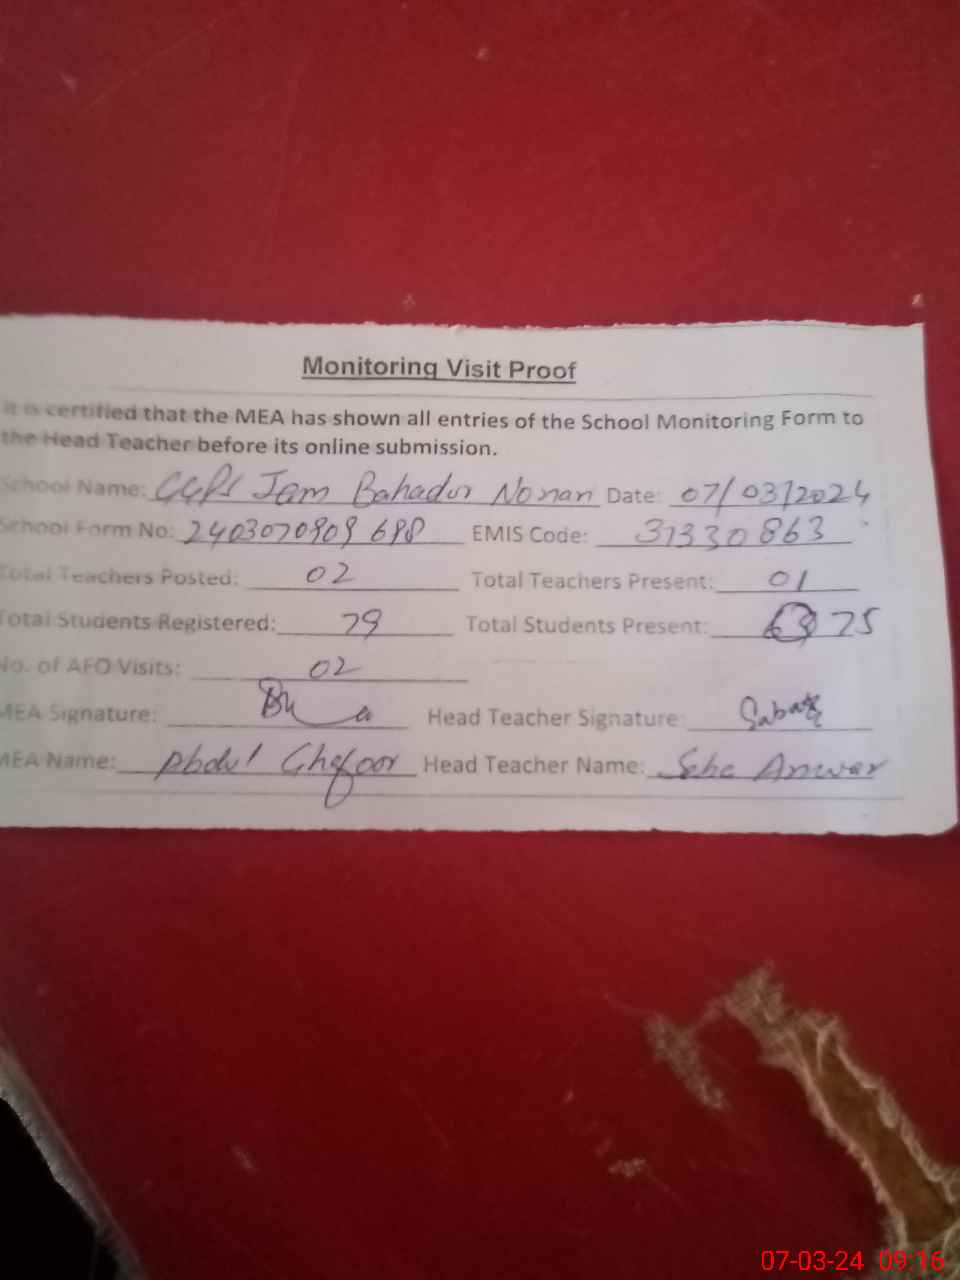 Monitoring Visit Proof
It is certified that the MEA has shown all entries of the School Monitoring Form to
the Head Teacher before its online submission.
School Name: GGPS Jam Bahadur Nonan Date: 07/03/2024
School Form No: 2403070909698 EMIS Code: 31330863
Total Teachers Posted: 02 Total Teachers Present: 01
Total Students Registered: 79 Total Students Present: 75
No. of AFO Visits: 02
MEA Signature: Head Teacher Signature:
MEA Name: Abdul Ghafoor Head Teacher Name: Anwar
07-03-24 09:16